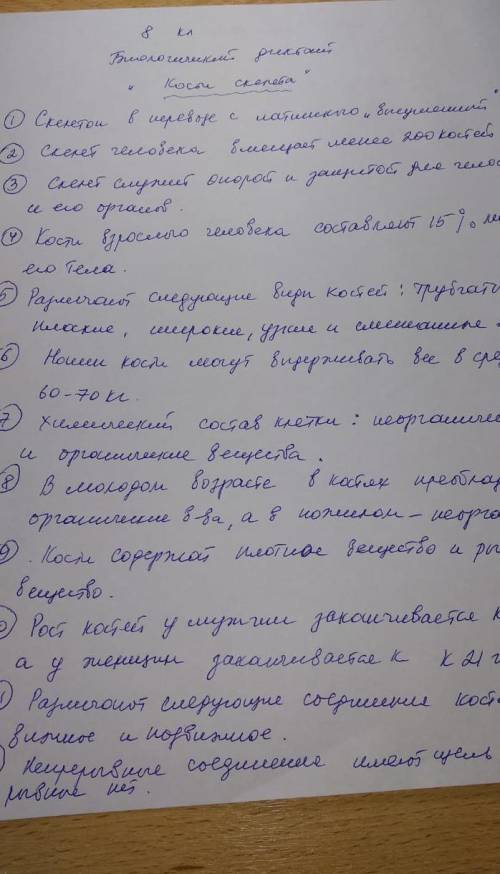 8 кл
Биологический диктант
"Кости скелета"
① Скелетон в переводе с латинского "высушенный"
② Скелет человека вмещает менее 200 костей
③ Скелет служит опорой и защитой для
и его органов.
④ Кости взрослого человека составляют 15%
его тела.
5 Различают следующие виды костей:
плоские, широкие, узкие и смешанные
6 Наши кости могут выдерживать вес в
60-70 кг.
7 Химический состав клетки:
и органические вещества.
8 В молодом возрасте в костях
органические в-ва, а в пожилом -
9 . Кости содержат плотное вещество и
вещество.
Рост костей у мужчин заканчивается к
а у женщин заканчивается к к 21
Различают следующие соединения
и подвижное.
Непрерывные соединения имеют щель
нет.